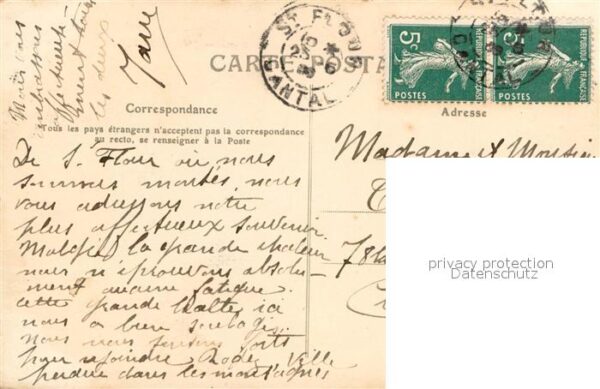 CARTE POSTA
ST FLOUR
CANTAL
5c
5c
POSTES
POSTES
REPUBLIQUE FRANÇAISE
REPUBLIQUE FRANÇAISE
Correspondance
Adresse
Tous les pays étrangers n'acceptent pas la correspondance
au recto, se renseigner à la Poste
De St Flour où nous
sommes montés, nous
vous adressons notre
plus affectueux souvenir
Malgré la grande chaleur
nous n'éprouvons absolu-
ment aucune fatigue.
cette grande halte ici
nous a bien soulagé
Nous nous forts
pour rejoindre Rodez Ville
perdue dans les montagnes
Mais vous
embrassons
affectueuse
ment tous
les deux
Madame et Monsieu
78
privacy protection
Datenschutz